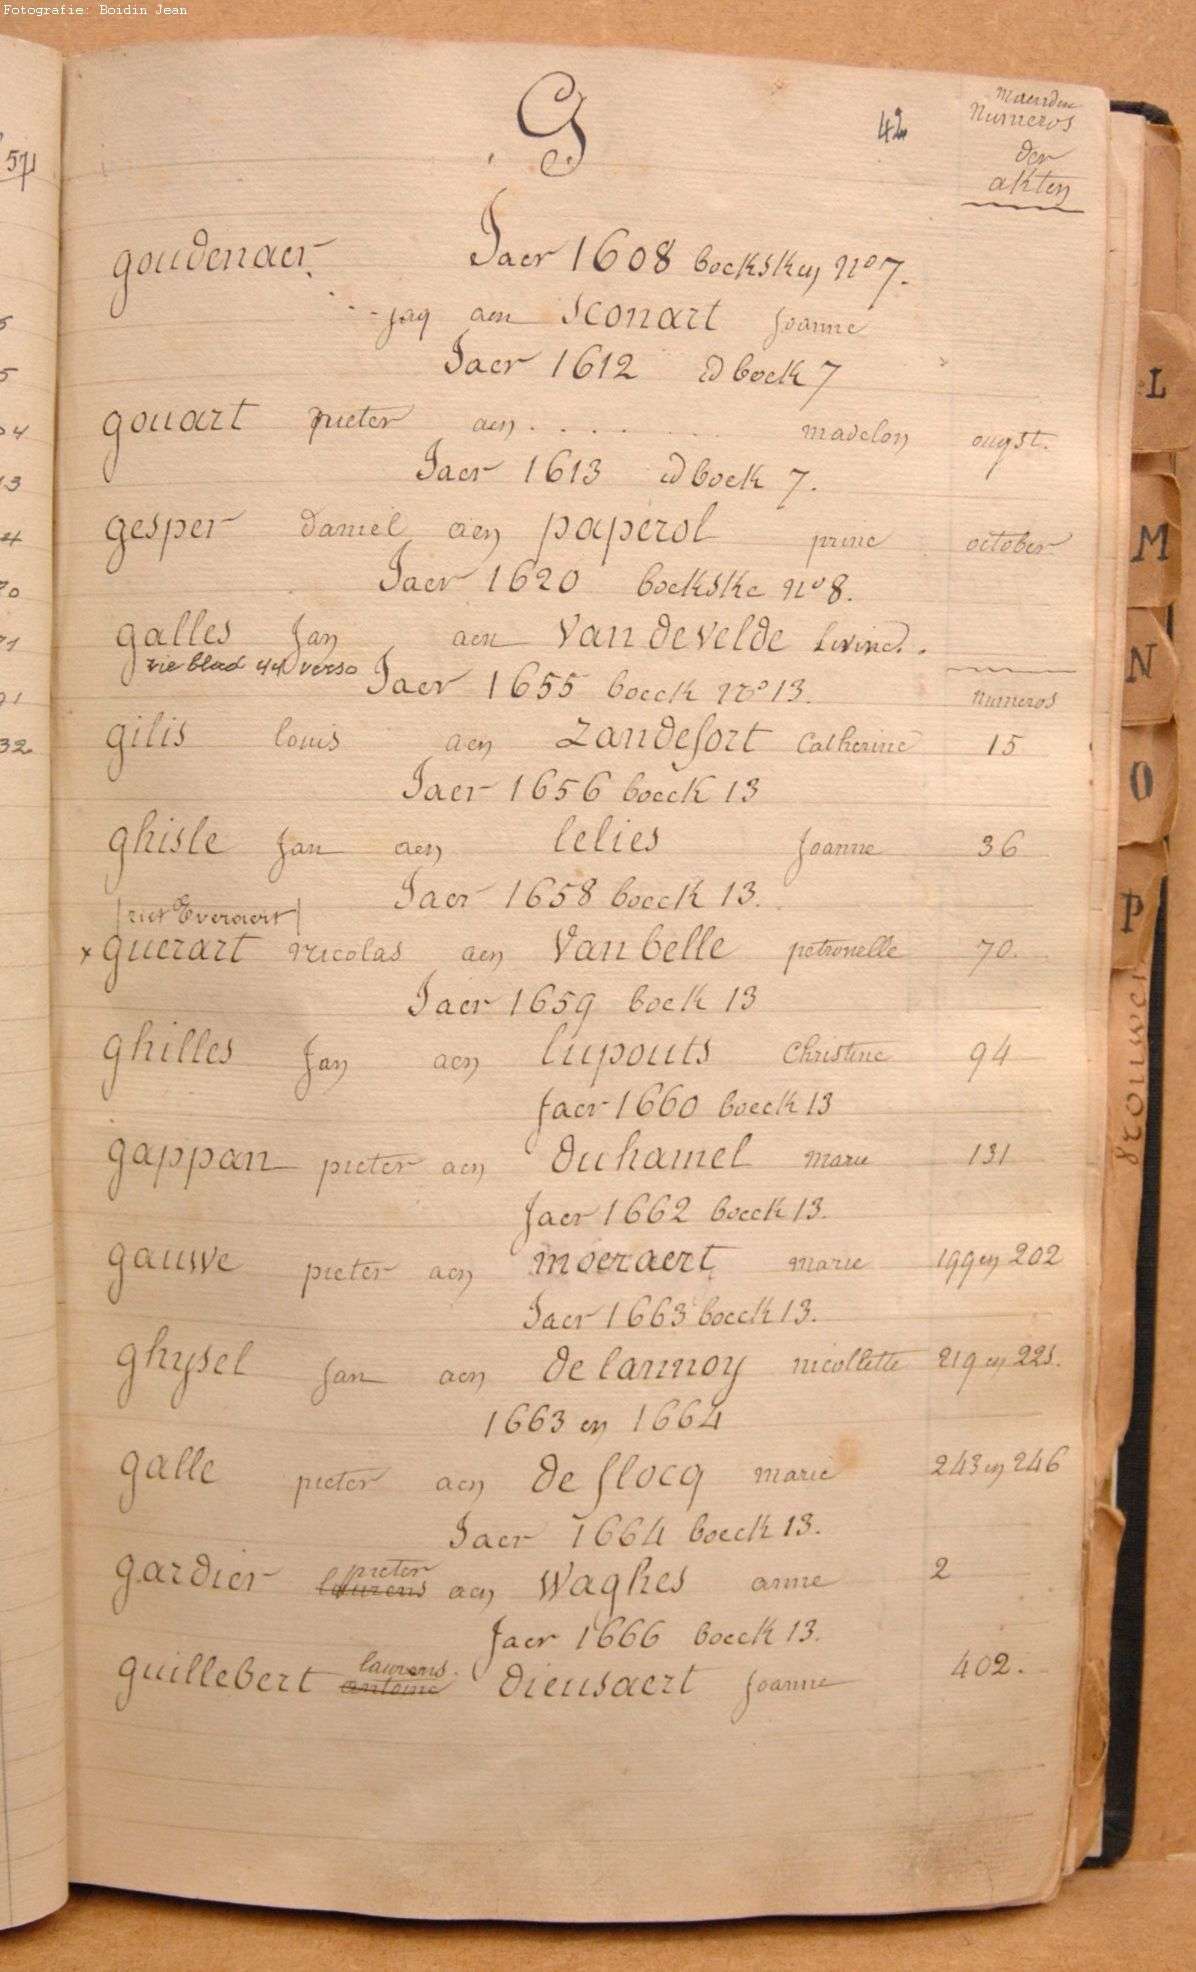 Fotografie: Boidin Jean
G
42
maenden
Numeros
der
akten
goudenaer
Jaer 1608 boekskey No 7.
jaq aen sconart joanne
Jaer 1612 id boek 7
gouart pieter aen . . . . . madelon ougst.
Jaer 1613 id boek 7.
gesper daniel aen paperol october
Jaer 1620 boekske No 8.
galles Jan aen Van de Velde
zie blad 44 verso
Jaer 1655 boeck No 13.
Numeros
gilis louis aen Zandefort Catherine 15
Jaer 1656 boeck 13
ghisle Jan aen lelies Joanne 36
Jaer 1658 boeck 13.
ziet Everaert
x guerart Nicolas aen Van belle petronelle 70.
Jaer 1659 boek 13
ghilles Jan aen lupouts Christine 94
Jaer 1660 boeck 13
gappan pieter aen duhamel marie 131
Jaer 1662 boeck 13.
gauwe pieter aen moeraert marie 199 en 202
Jaer 1663 boeck 13.
ghysel Jan aen de lannoy nicollette 219 en 221.
1663 en 1664
galle pieter aen de flocq marie 243 en 246
Jaer 1664 boeck 13.
gardier laurens pieter aen Waghes anne 2
Jaer 1666 boeck 13.
guillebert antoine laurens. dieusaert Joanne 402.
571
L
M
N
O
P